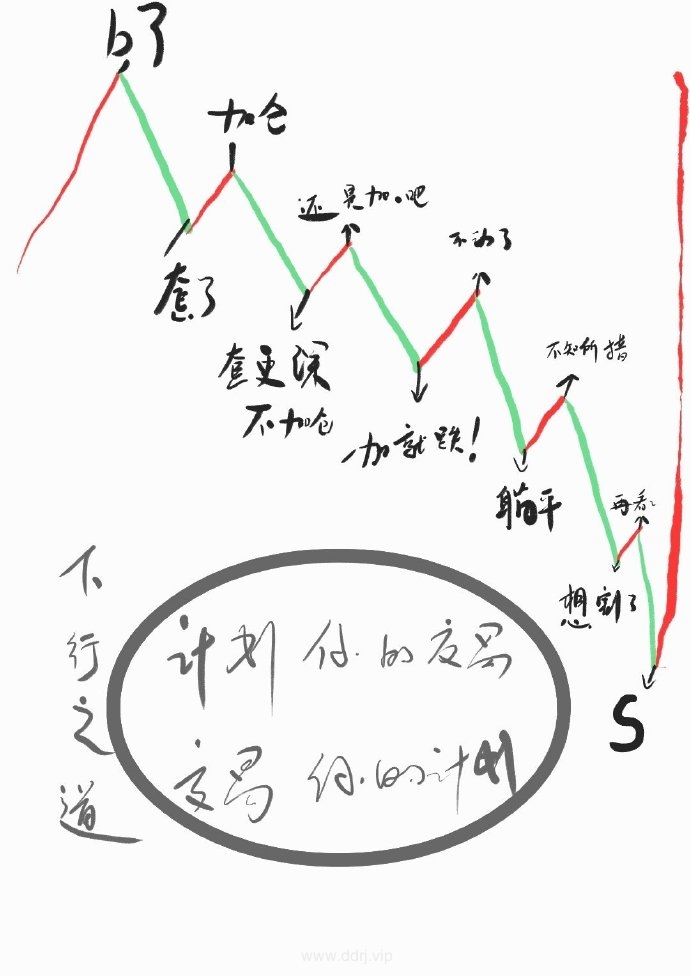 b了
加仓
还是加.吧
不动了
套了
套更深
不加仓
不知所措
一加就跌！
躺平
再看看
想割了
S
下行之道
计划你的交易
交易你的计划
www.ddrj.vip